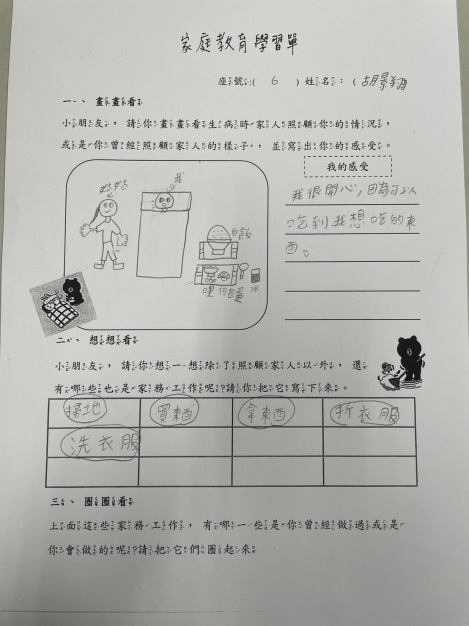 家庭教育學習單
座號:( 6 ) 姓名:(胡景翔
一、畫畫看
小朋友，請你畫畫看生病時家人照顧你的情況，
或是你曾經照顧家人的樣子，並寫出你的感受。
我的感受
我很開心，因為可以
吃到我想吃的東
西。
姑姑
我
白飯
水
二、想想看
小朋友，請你想一想除了照顧家人以外，還
有哪些也是家務工作呢?請你把它寫下來。
掃地 買東西 拿東西 折衣服
洗衣服
三、圈圈看
上面這些家務工作，有哪一些是你曾經做過或是
你會做的呢?請把它們圈起來